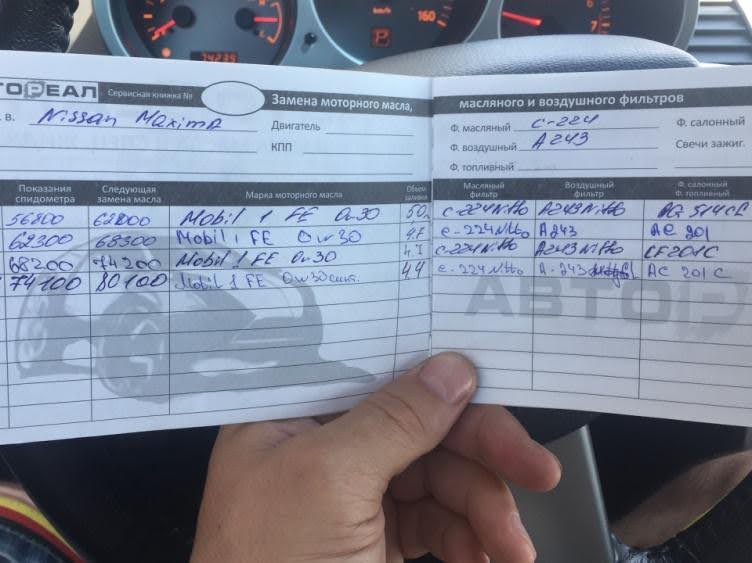 160
7
74235
P
ТОРЕАЛ Сервисная книжка № Замена моторного масла, масляного и воздушного фильтров
в. Nissan Maxima Двигатель Ф. масляный C-224 Ф. салонный
КПП Ф. воздушный A243 Свечи зажиг.
Ф. топливный
Показания спидометра Следующая замена масла Марка моторного масла Объем заливки Масляный фильтр Воздушный фильтр Ф. салонный Ф. топливный
56200 62000 Mobil 1 FE 0w30 5.0 C-224 Nitto A243 Nitto
62300 68300 Mobil 1 FE 0w30 4.7 C-224 Nitto A243 AC 201
68200 74200 Mobil 1 FE 0w30 4.7 C-224 Nitto A243 Nitto CF201C
74100 80100 Mobil 1 FE 0w30 синт. 4,4 C-224 Nitto A-243 AC 201 C
АВТОР